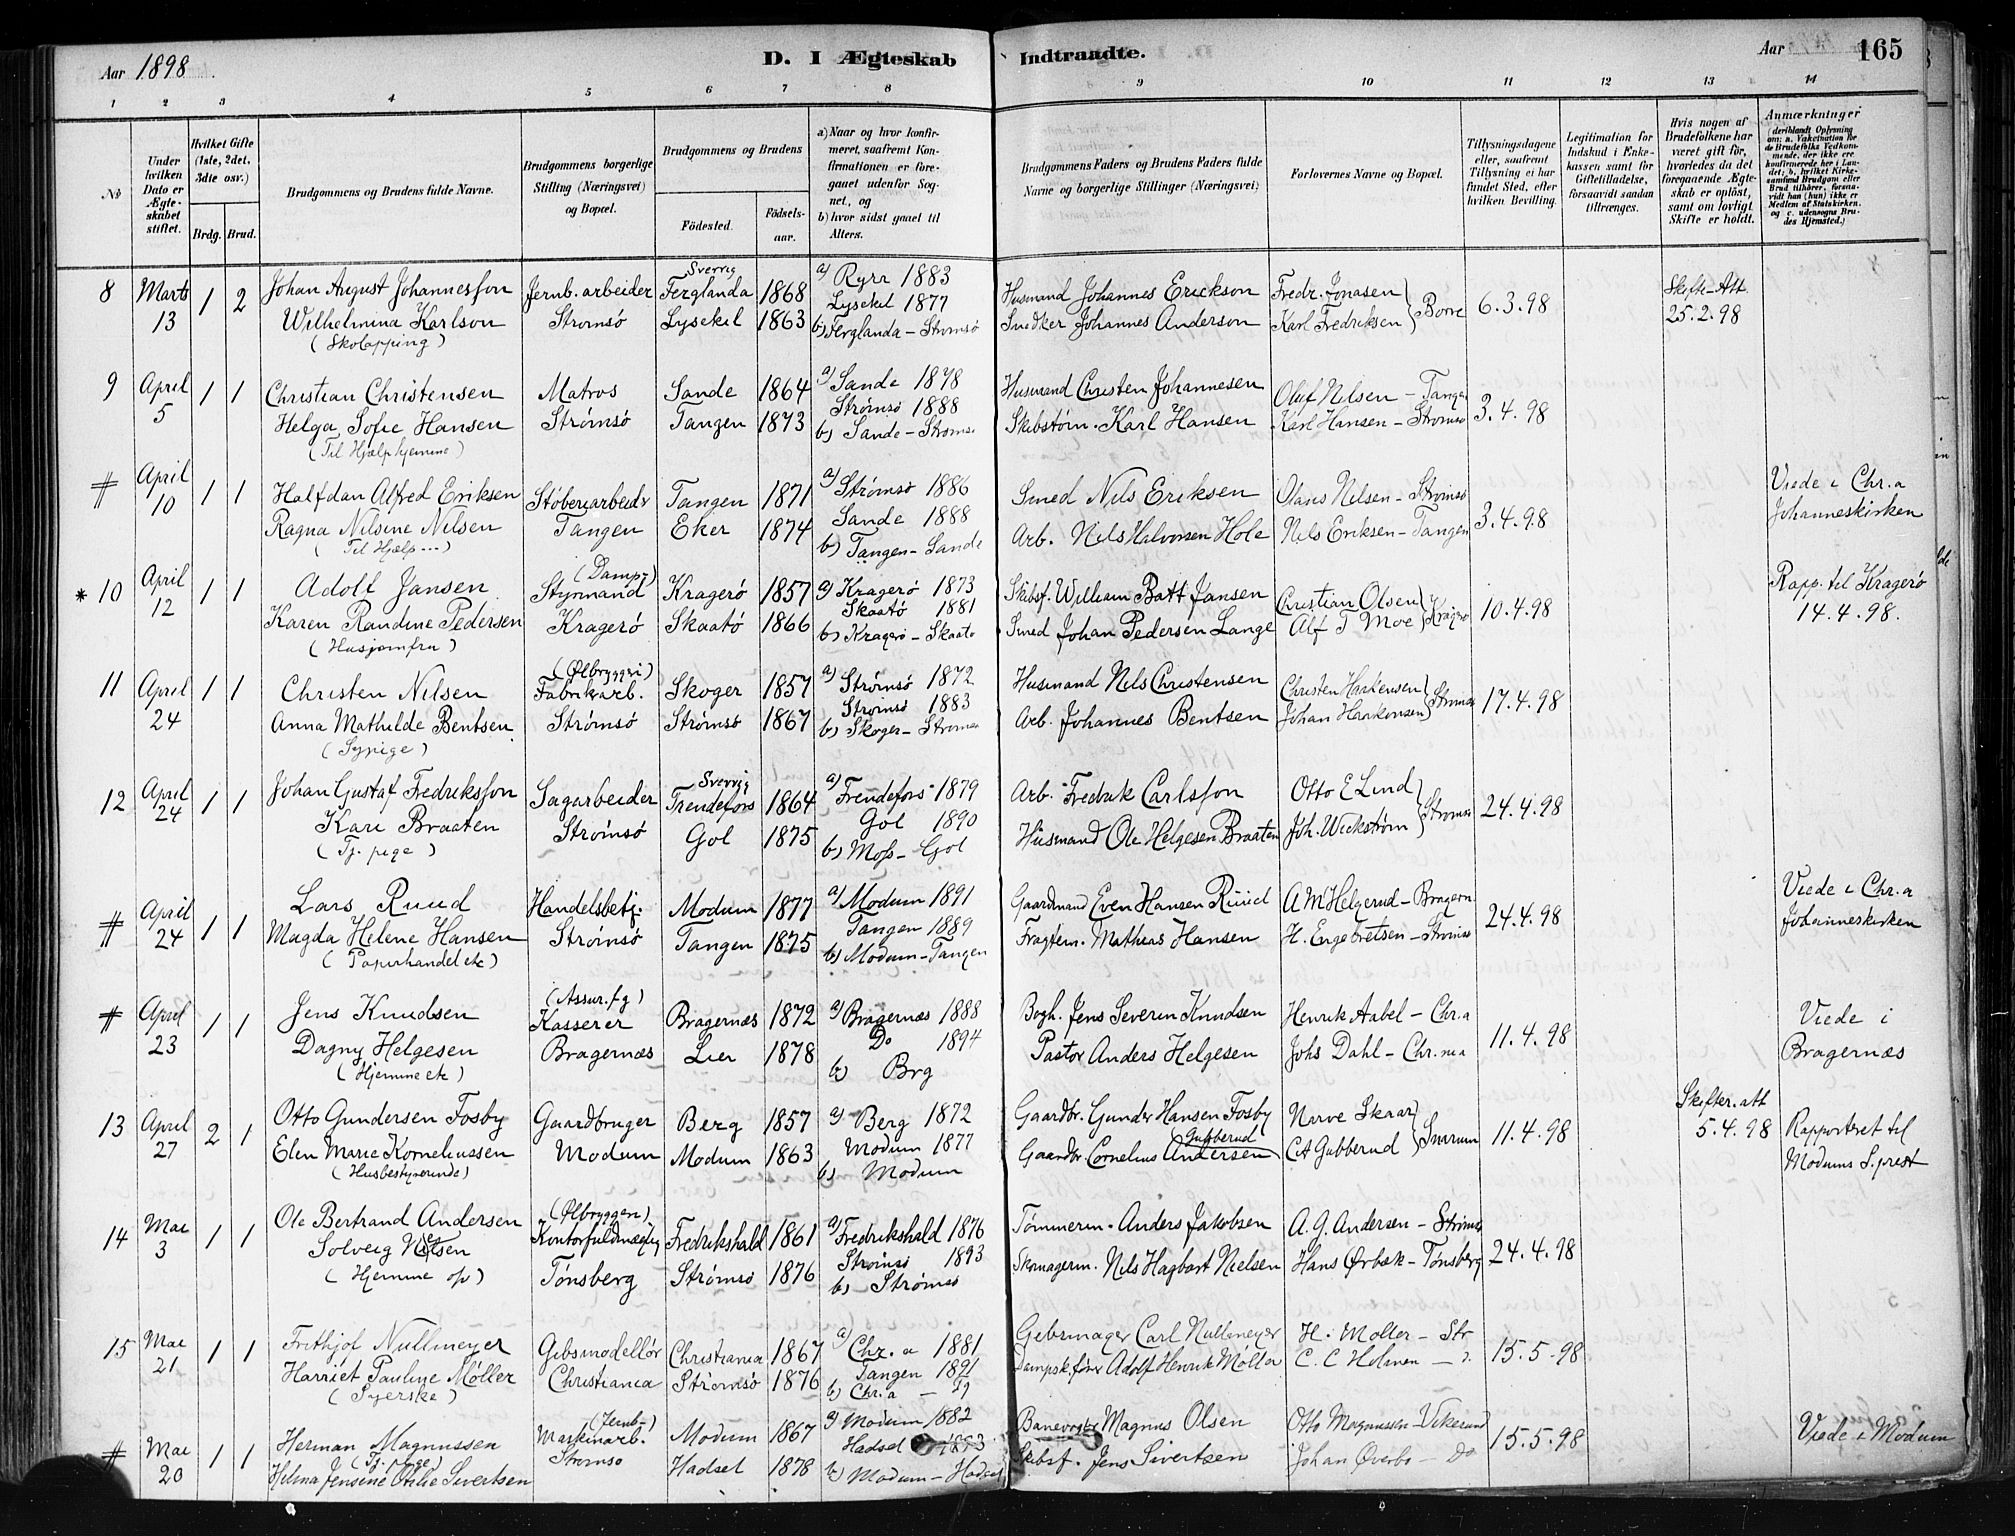 Aar 1898
D. I Ægteskab Indtraadte.
Aar
165
1 2 3 4 5 6 7 8 9 10 11 12 13 14
No
Under hvilken Dato er Ægteskabet stiftet.
Hvilket Gifte (1ste, 2det, 3dte osv.)
Brdg. Brud.
Brudgommens og Brudens fulde Navne.
Brudgommens borgerlige Stilling (Næringsvei) og Bopæl.
Brudgommens og Brudens
Fødested. Fødselsaar.
a) Naar og hvor konfirmeret, saafremt Konfirmationen er foregaaet udenfor Sognet, og
b) hvor sidst gaaet til Alters.
Brudgommens Faders og Brudens Faders fulde Navne og borgerlige Stillinger (Næringsvei)
Forlovernes Navne og Bopæl.
Tillysningsdagene eller, saafremt Tillysning ei har fundet Sted, efter hvilken Bevilling.
Legitimation for Indskud i Enkekassen samt for Giftetilladelse, forsaavidt saadan tiltrænges.
Hvis nogen af Brudefolkene har været gift før, hvorledes da det foregaaende Ægteskab er opløst, samt om lovligt Skifte er holdt.
Anmærkninger (deriblandt Oplysning om: a. Vakcination for de Brudefolks Vedkommende, der ikke ere konfirmerede her i Landet; b. hvilket Kirkesamfund Brudgom eller Brud tilhører, forsaavidt han (hun) ikke er Medlem af Statskirken, og c. udensogns Brudes Hjemsted.)
8 Marts 1 2 Johan August Johannesson Jernb. arbeider Sverrig Ferglanda 1868 a) Ryrr 1883 Husmand Johannes Erickson Fredr. Jonasen } Borre 6.3.98 Skifte-Att.
13 Wilhelmina Karlson Strømsö Lysekil 1863 Lysekil 1877 Snedker Johannes Anderson Karl Fredriksen 25.2.98
(Skolapping) b) Ferglanda - Strømsö
9 April 1 1 Christian Christensen Matros Sande 1864 a) Sande 1878 Husmand Christen Johannesen Oluf Nilsen - Tangen 3.4.98
5 Helga Sofie Hansen Strømsö Tangen 1873 Strömsö 1888 Skibstøm. Karl Hansen Karl Hansen - Strömsö
(Til Hjælp hjemme) b) Sande - Strømsö
# April 1 1 Halfdan Alfred Eriksen Støberiarbeidr Tangen 1871 a) Strømsö 1886 Smed Nils Eriksen Olaus Nilsen - Strömsö 3.4.98 Viede i Chr.a
10 Ragna Nilsine Nilsen Tangen Eker 1874 Sande 1888 Arb. Nils Halvorsen Hole Nils Eriksen - Tangen Johanneskirken
(Til Hjælp ...) b) Tangen - Sande
* 10 April 1 1 Adolf Jansen (Damp) Styrmand Kragerö 1857 a) Kragerö 1873 Skibsf. William Batt Jansen Christian Olsen } Kragerö 10.4.98 Rapp. til Kragerö
12 Karen Randine Pedersen Kragerö Skaatö 1866 Skaatö 1881 Smed Johan Pedersen Lange Alf T Moe 14.4.98.
(Husjomfru) b) Kragerö - Skaatö
11 April 1 1 Christen Nilsen (Ølbryggeri) Fabrikarb. Skoger 1857 a) Strømsö 1872 Husmand Nils Christensen Christen Haakensen } Strømsö 17.4.98
24 Anna Mathilde Bentsen Strømsö Strømsö 1867 Strömsö 1883 Arb. Johannes Bentsen Johan Haakonsen
(Sypige) b) Skoger - Strømsö
12 April 1 1 Johan Gustaf Fredriksson Sagarbeider Sverrig Frendefors 1864 a) Frendefors 1879 Arb. Fredrik Carlsson Otto E Lind } Strømsö 24.4.98
24 Kari Braaten Strømsö Gol 1875 Gol 1890 Husmand Ole Helgesen Braaten Joh. Wickstrøm
(Tj. pige) b) Moss - Gol
# April 1 1 Lars Ruud Handelsbetj. Modum 1877 a) Modum 1891 Gaardmand Even Hansen Ruud A M Helgerud - Bragern 24.4.98 Viede i Chr.a
24 Magda Helene Hansen Strømsö Tangen 1875 Tangen 1889 Fragtem. Mathias Hansen H. Engebretsen - Strömsö Johanneskirken
(Papirhandel etc) b) Modum - Tangen
# April 1 1 Jens Knudsen (Assur. fg) Kasserer Bragernæs 1872 a) Bragernæs 1888 Bogh. Jens Severin Knudsen Henrik Aabel - Chr.a 11.4.98 Viede i
23 Dagny Helgesen Bragernæs Lier 1878 Do 1894 Pastor Anders Helgesen Johs Dahl - Chr.nia Bragernæs
(Hjemme etc) b) Brg
13 April 2 1 Otto Gundersen Fosby Gaardbruger Berg 1857 a) Berg 1872 Gaardbr. Gunder Hansen Fosby Narve Skaar } Snarum 11.4.98 Skifter. att 5.4.98 Rapporteret til
27 Elen Marie Korneliussen Modum Modum 1863 Modum 1877 Gaardbr Cornelius Andersen Gubberud C A Gubberud Modums S.prest
(Husbestyrerinde) b) Modum
14 Mai 1 1 Ole Bertrand Andersen (Ølbryggeri) Kontorfuldmægtig Fredrikshald 1861 a) Fredrikshald 1876 Tømmerm. Anders Jakobsen A. G. Andersen - Strømsö 24.4.98
3 Solveig Nielsen Tønsberg Strømsö 1876 Strømsö 1893 Skomagerm. Nils Hagbart Nielsen Hans Ørbæk - Tønsberg
(Hjemme op) b) Strömsö
15 Mai 1 1 Frithjof Nullmeyer Gibsmodellør Christiania 1867 a) Chr.a 1881 Gibsmager Carl Nullmeyer H. Møller - Str 15.5.98
21 Harriet Pauline Møller Christiania Strømsö 1876 Tangen 1891 Dampsk.fører Adolf Henrik Møller C. C Holmen
(Syerske) b) Chr.a - Tg
# Mai 1 1 Herman Magnussen (Jernb-) Maskinarb. Modum 1867 a) Modum 1882 Banevogter Magnus Olsen Otto Magnussen - Vikersund 15.5.98 Viede i Modum
20 (Tj. pige) Strømsö
Helma Jensine Otilie Sivertsen Hadsel 1878 Hadsel 1893 Skibsf. Jens Sivertsen Johan Øverbo - Do
b) Modum - Hadsel